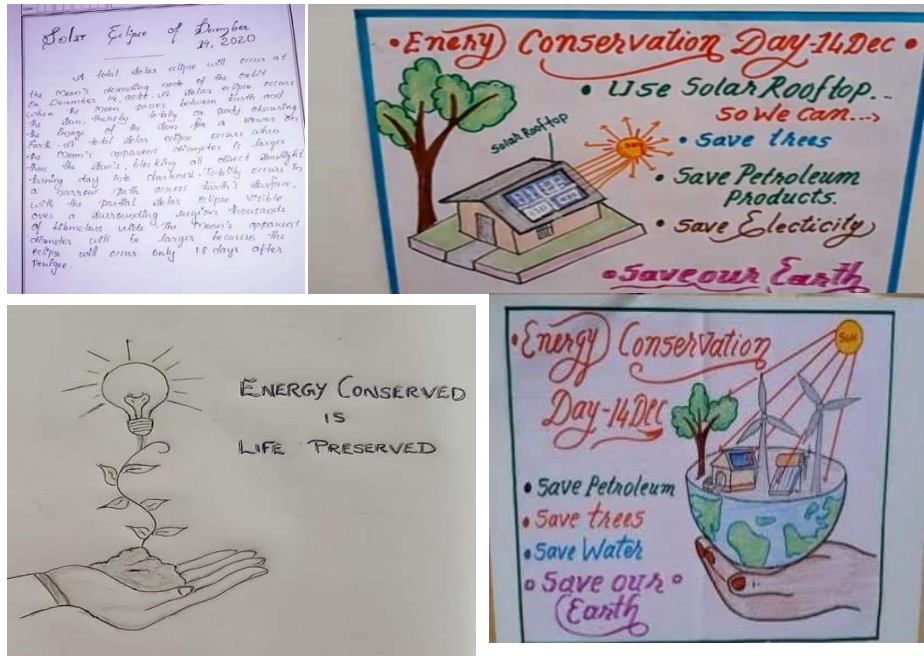 Solar Eclipse of December
14, 2020
A total solar eclipse will occur at
the Moon's descending node of the orbit
on December 14, 2020. A solar eclipse occurs
when the Moon passes between Earth and
the Sun, thereby totally or partly obscuring
the image of the Sun for a viewer on
Earth. A total solar eclipse occurs when
the Moon's apparent diameter is larger
than the Sun's, blocking all direct sunlight
turning day into darkness. Totality occurs in
a narrow path across Earth's surface,
with the partial solar eclipse visible
over a surrounding region thousands
of kilometres wide. The Moon's apparent
diameter will be larger because the
eclipse will occur only 1.8 days after
Perigee.
• Enery Conservation Day-14 Dec •
• Use Solar Rooftop...
So We Can...→
Solar Rooftop
SUN
• Save trees
• Save Petroleum
Products.
• Save Electicity
• Save our Earth
ENERGY CONSERVED
IS
LIFE PRESERVED
• Energy Conservation
Day-14 Dec
SUN
• Save Petroleum
• Save trees
• Save Water
• Save our •
Earth